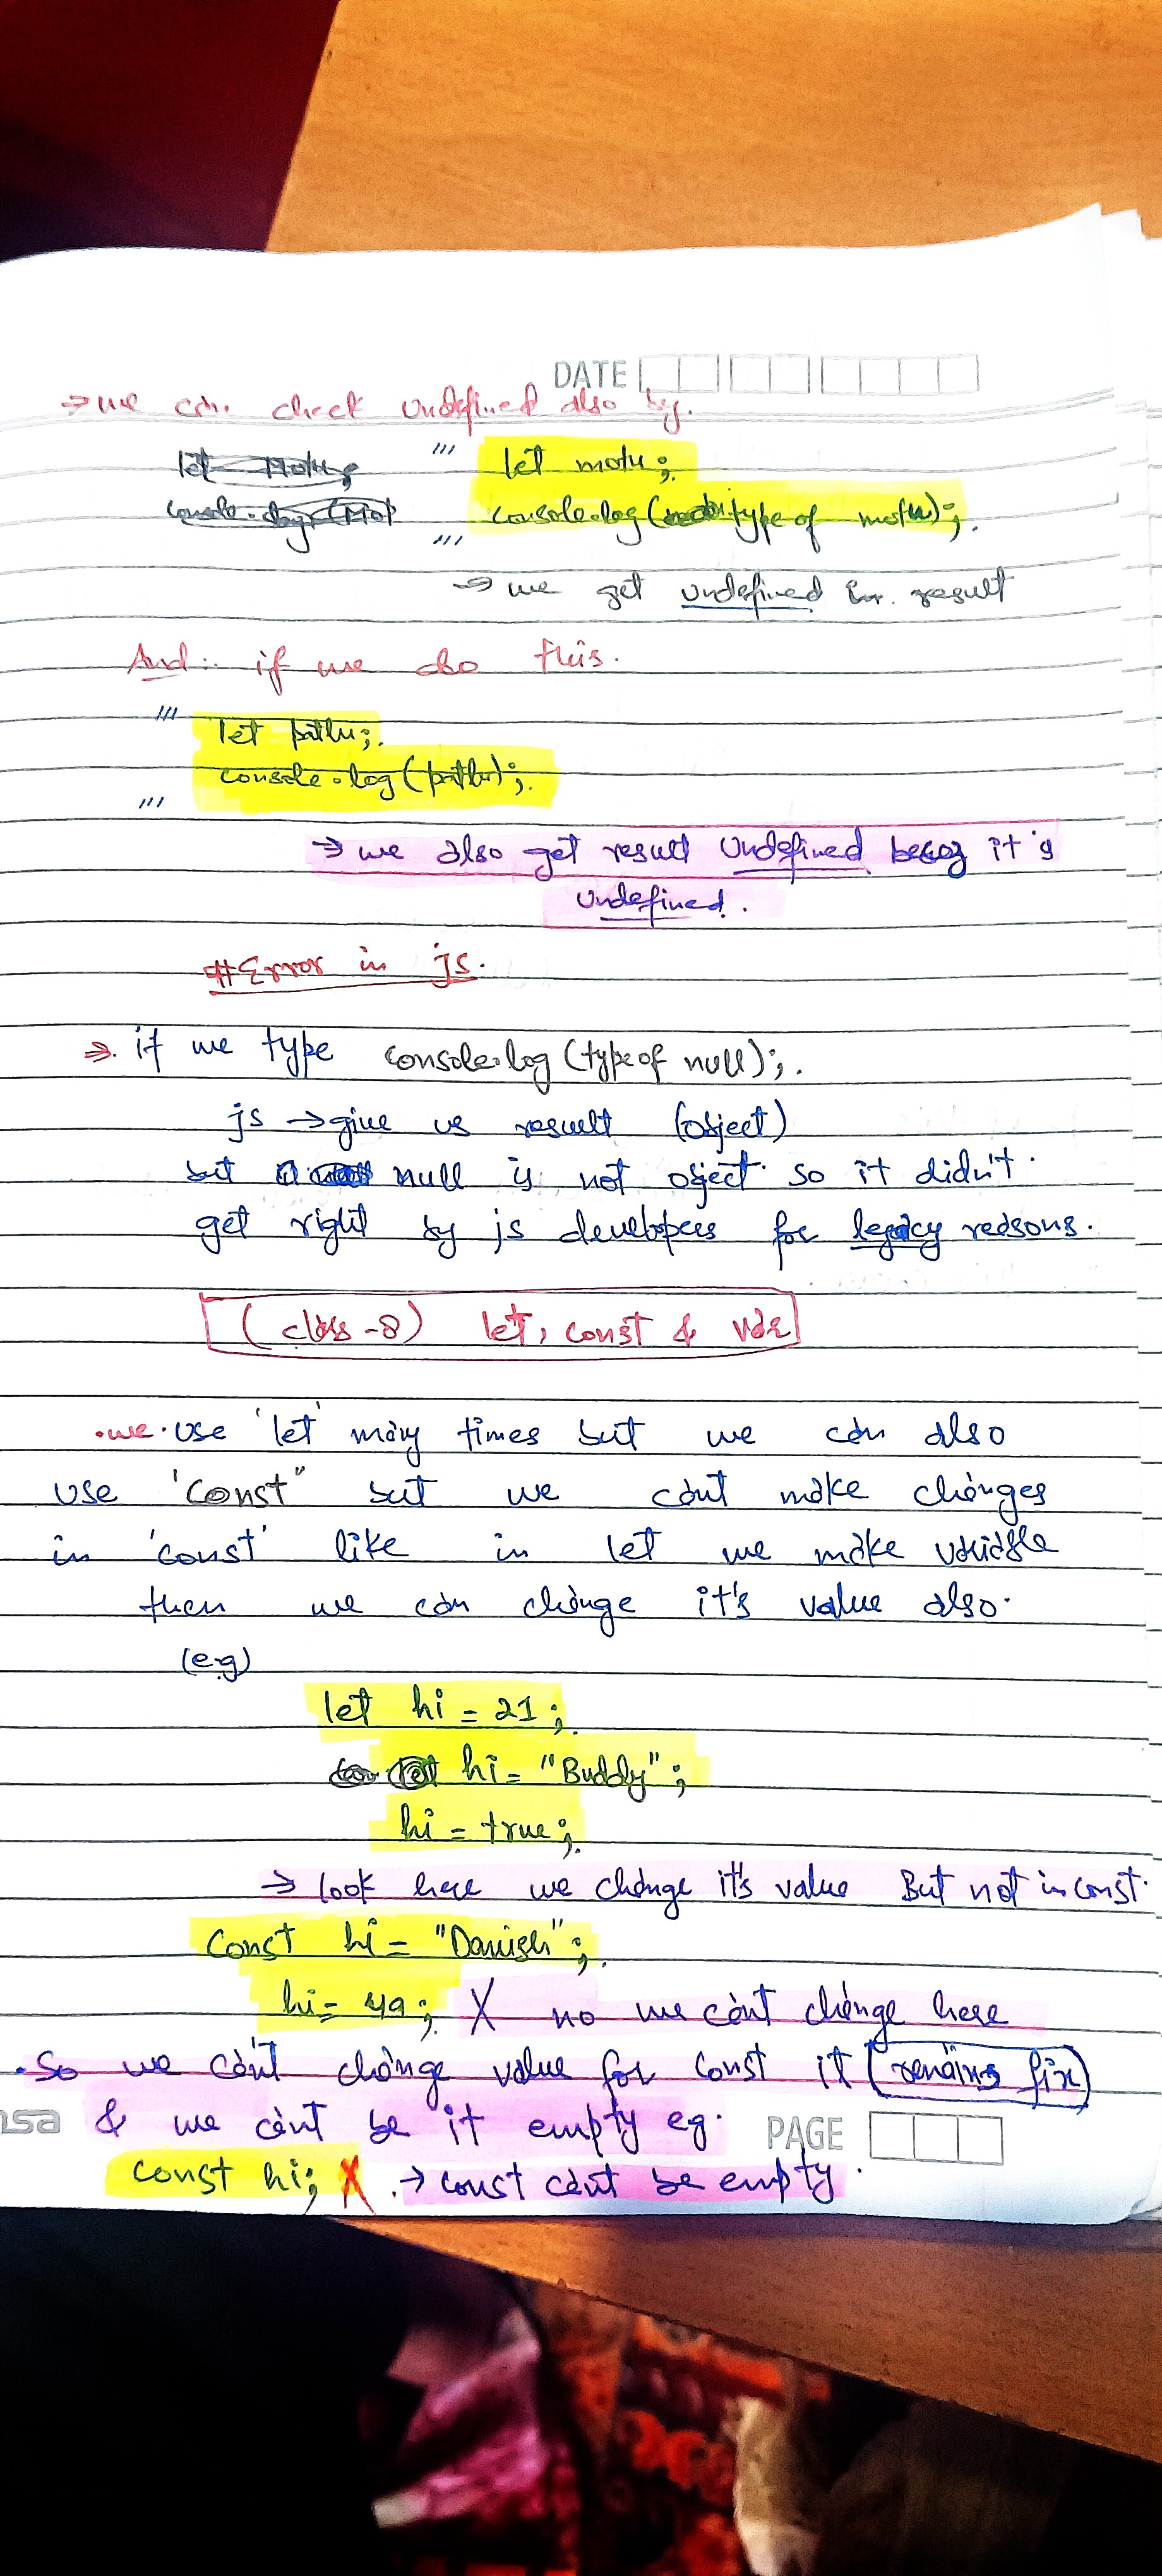 DATE
→ we can check undefined also by.
let motu;
''' let motu;
console.log(typeof motu);
'''
→ we get undefined in result
And:- if we do this.
'''
let patlu;
console.log(patlu);
'''
→ we also get result undefined becoz it's
undefined.
#Error in js.
⇒ if we type console.log(typeof null);
js → give us result (object)
but null is not object so it didn't
get right by js developers for legacy reasons.
(class-8) let, const & var
• we use 'let' many times but we can also
use 'const" but we can't make changes
in 'const' like in let we make variable
then we can change it's value also.
(e.g)
let hi = 21;
hi = "Buddy";
hi = true;
→ look here we change it's value But not in const.
const hi = "Danish";
hi = 49; X no we can't change here
• so we can't change value for const it remains fix
& we can't be it empty eg.
PAGE
const hi; X → const can't be empty.